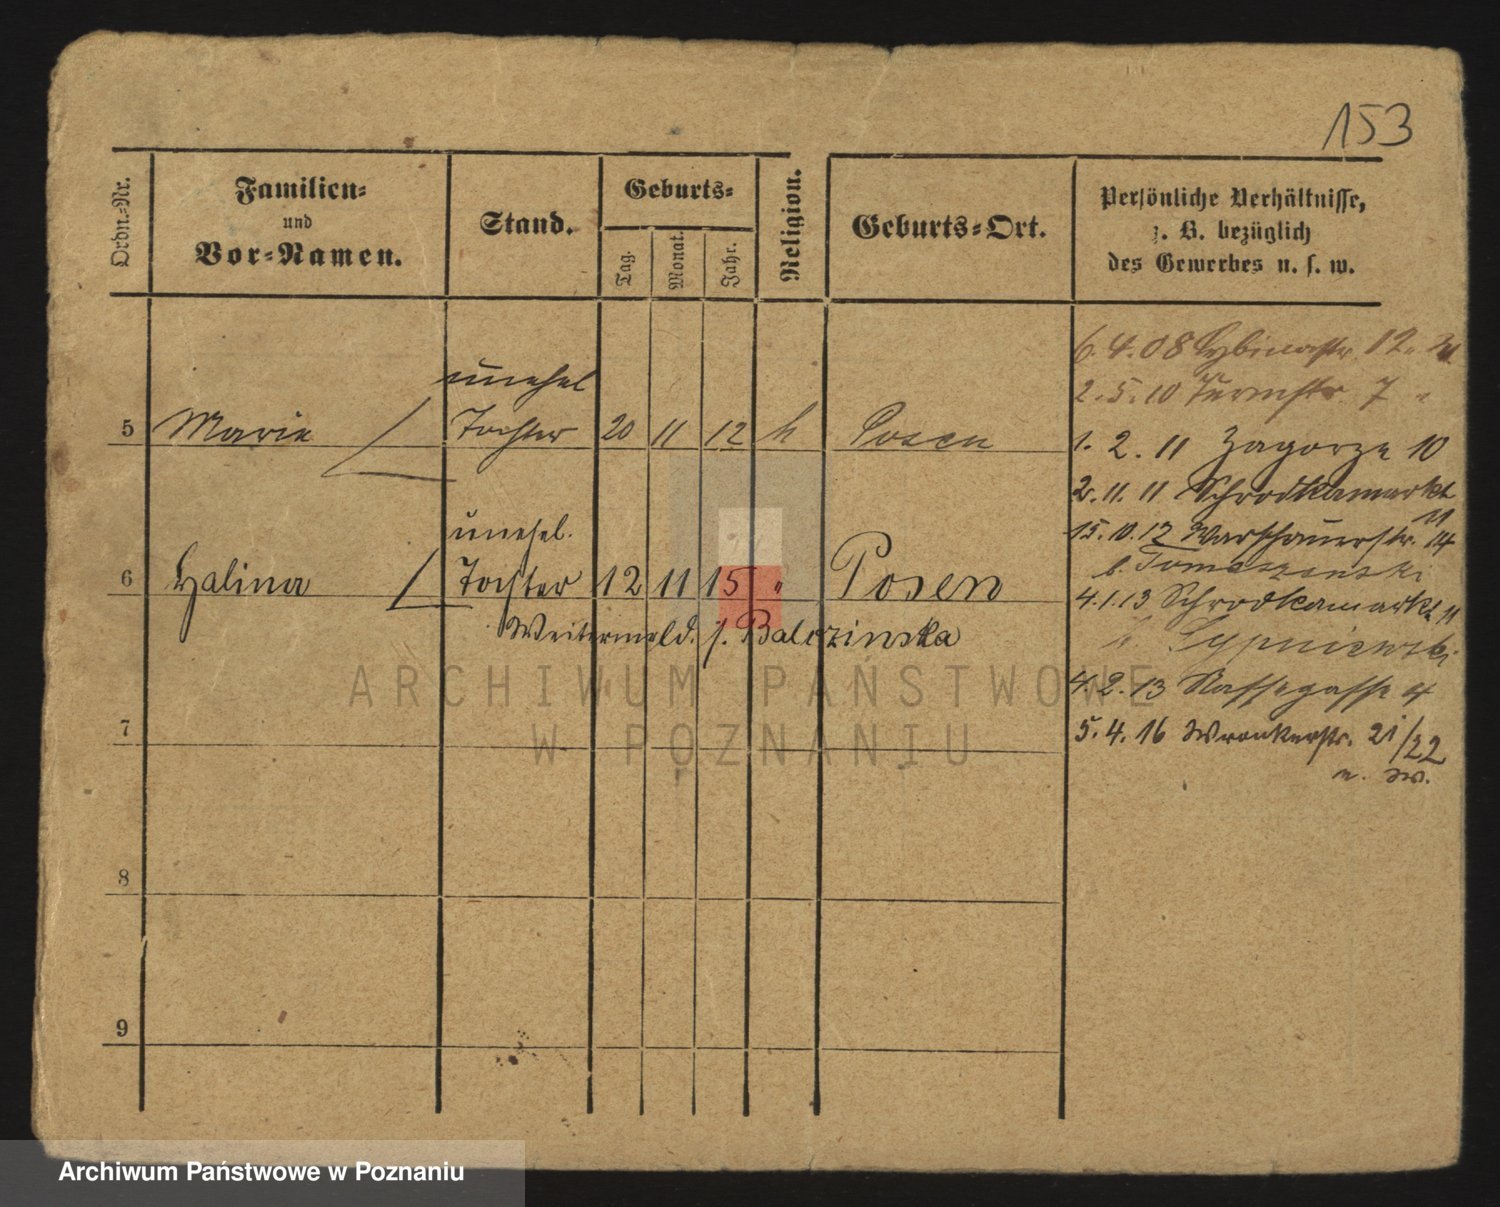 153
Ordn.-Nr.
Familien-
und
Vor-Namen.
Stand.
Geburts-
Tag.
Monat.
Jahr.
Religion.
Geburts-Ort.
Persönliche Verhältnisse,
z. B. bezüglich
des Gewerbes u. s. w.
6. 4. 08 Cybinastr. 12.
2. 5. 10 Turmstr. 7 "
1. 2. 11 Zagorze 10
2. 11. 11 Schrodkamarkt
11
15. 10. 12 Warschauerstr. 14
b. Tomaszewski
4. 1. 13 Schrodkamarkt 11
b. Sypniewski
4. 2. 13 Nassegasse 4
5. 4. 16 Wronkerstr. 21/22
unehel
5 Marie Tochter 20 11 12 k Posen
unehel.
6 Halina Tochter 12 11 15 " Posen
Weitermeld. s. Balczinska
7
8
9
ARCHIWUM PAŃSTWOWE
W POZNANIU
Archiwum Państwowe w Poznaniu